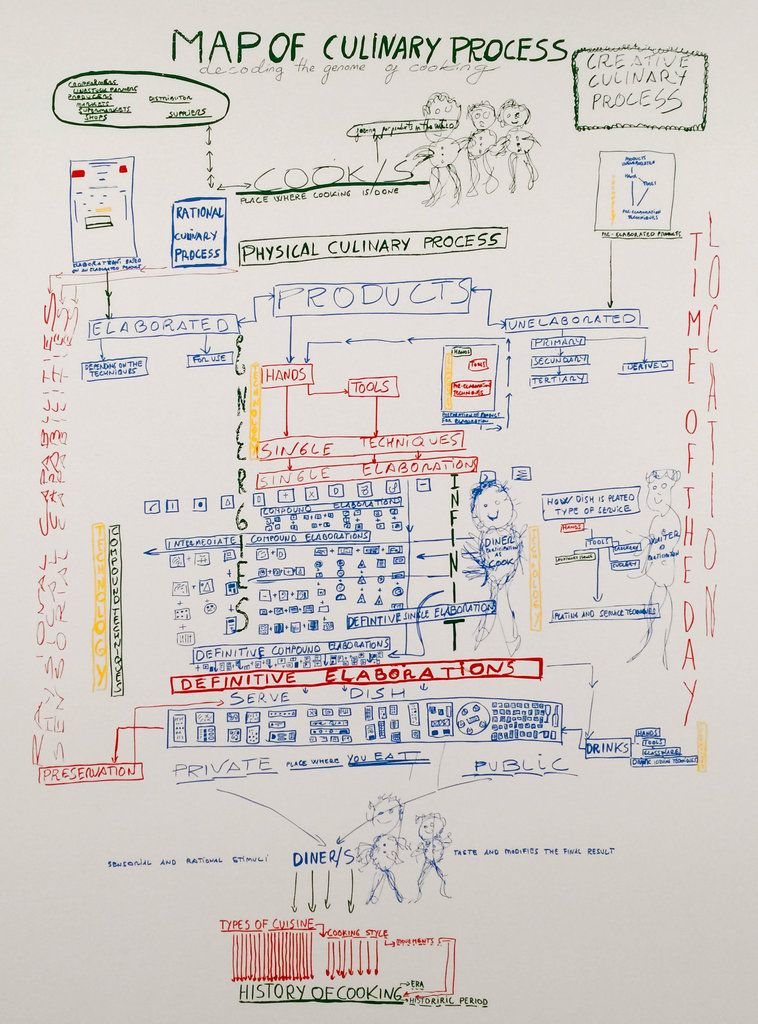 MAP OF CULINARY PROCESS
decoding the genome of cooking
CREATIVE
CULINARY
PROCESS
PRODUCERS
MARKETS
SUPERMARKETS
SHOPS
DISTRIBUTOR
SUPPLIERS
COOK/S
PLACE WHERE COOKING IS DONE
RATIONAL
CULINARY
PROCESS
PHYSICAL CULINARY PROCESS
TOOLS
PRE-ELABORATED PRODUCTS
PRODUCTS
ELABORATED
UNELABORATED
DEPENDING ON THE
TECHNIQUES
FOR USE
PRIMARY
SECUNDARY
TERTIARY
DERIVED
HANDS
TOOLS
TECHNOLOGY
HANDS
TOOLS
PRE-ELABORATION
TECHNIQUES
FOR ELABORATION
SINGLE TECHNIQUES
SINGLE ELABORATIONS
SYNERGIES
INFINIT
COMPOUND ELABORATIONS
INTERMEDIATE COMPOUND ELABORATIONS
DEFINTIVE SINGLE ELABORATION
DEFINITIVE COMPOUND ELABORATIONS
DEFINITIVE ELABORATIONS
TECHNOLOGY
COMPOUND TECHNIQUES
DINER
PARTICIPATION
AS
COOK
HOW DISH IS PLATED
TYPE OF SERVICE
HANDS
TOOLS
PLATING AND SERVICE TECHNIQUES
TIME OF THE DAY
LOCATION
SERVE DISH
PRESERVATION
DRINKS
HANDS
TOOLS
GLASSWARE
PRIVATE
PLACE WHERE YOU EAT
PUBLIC
SENSORIAL AND RATIONAL STIMULI
DINER/S
TASTE AND MODIFIES THE FINAL RESULT
TYPES OF CUISINE
COOKING STYLE
MOVEMENTS
HISTORY OF COOKING
ERA
HISTORIRIC PERIOD